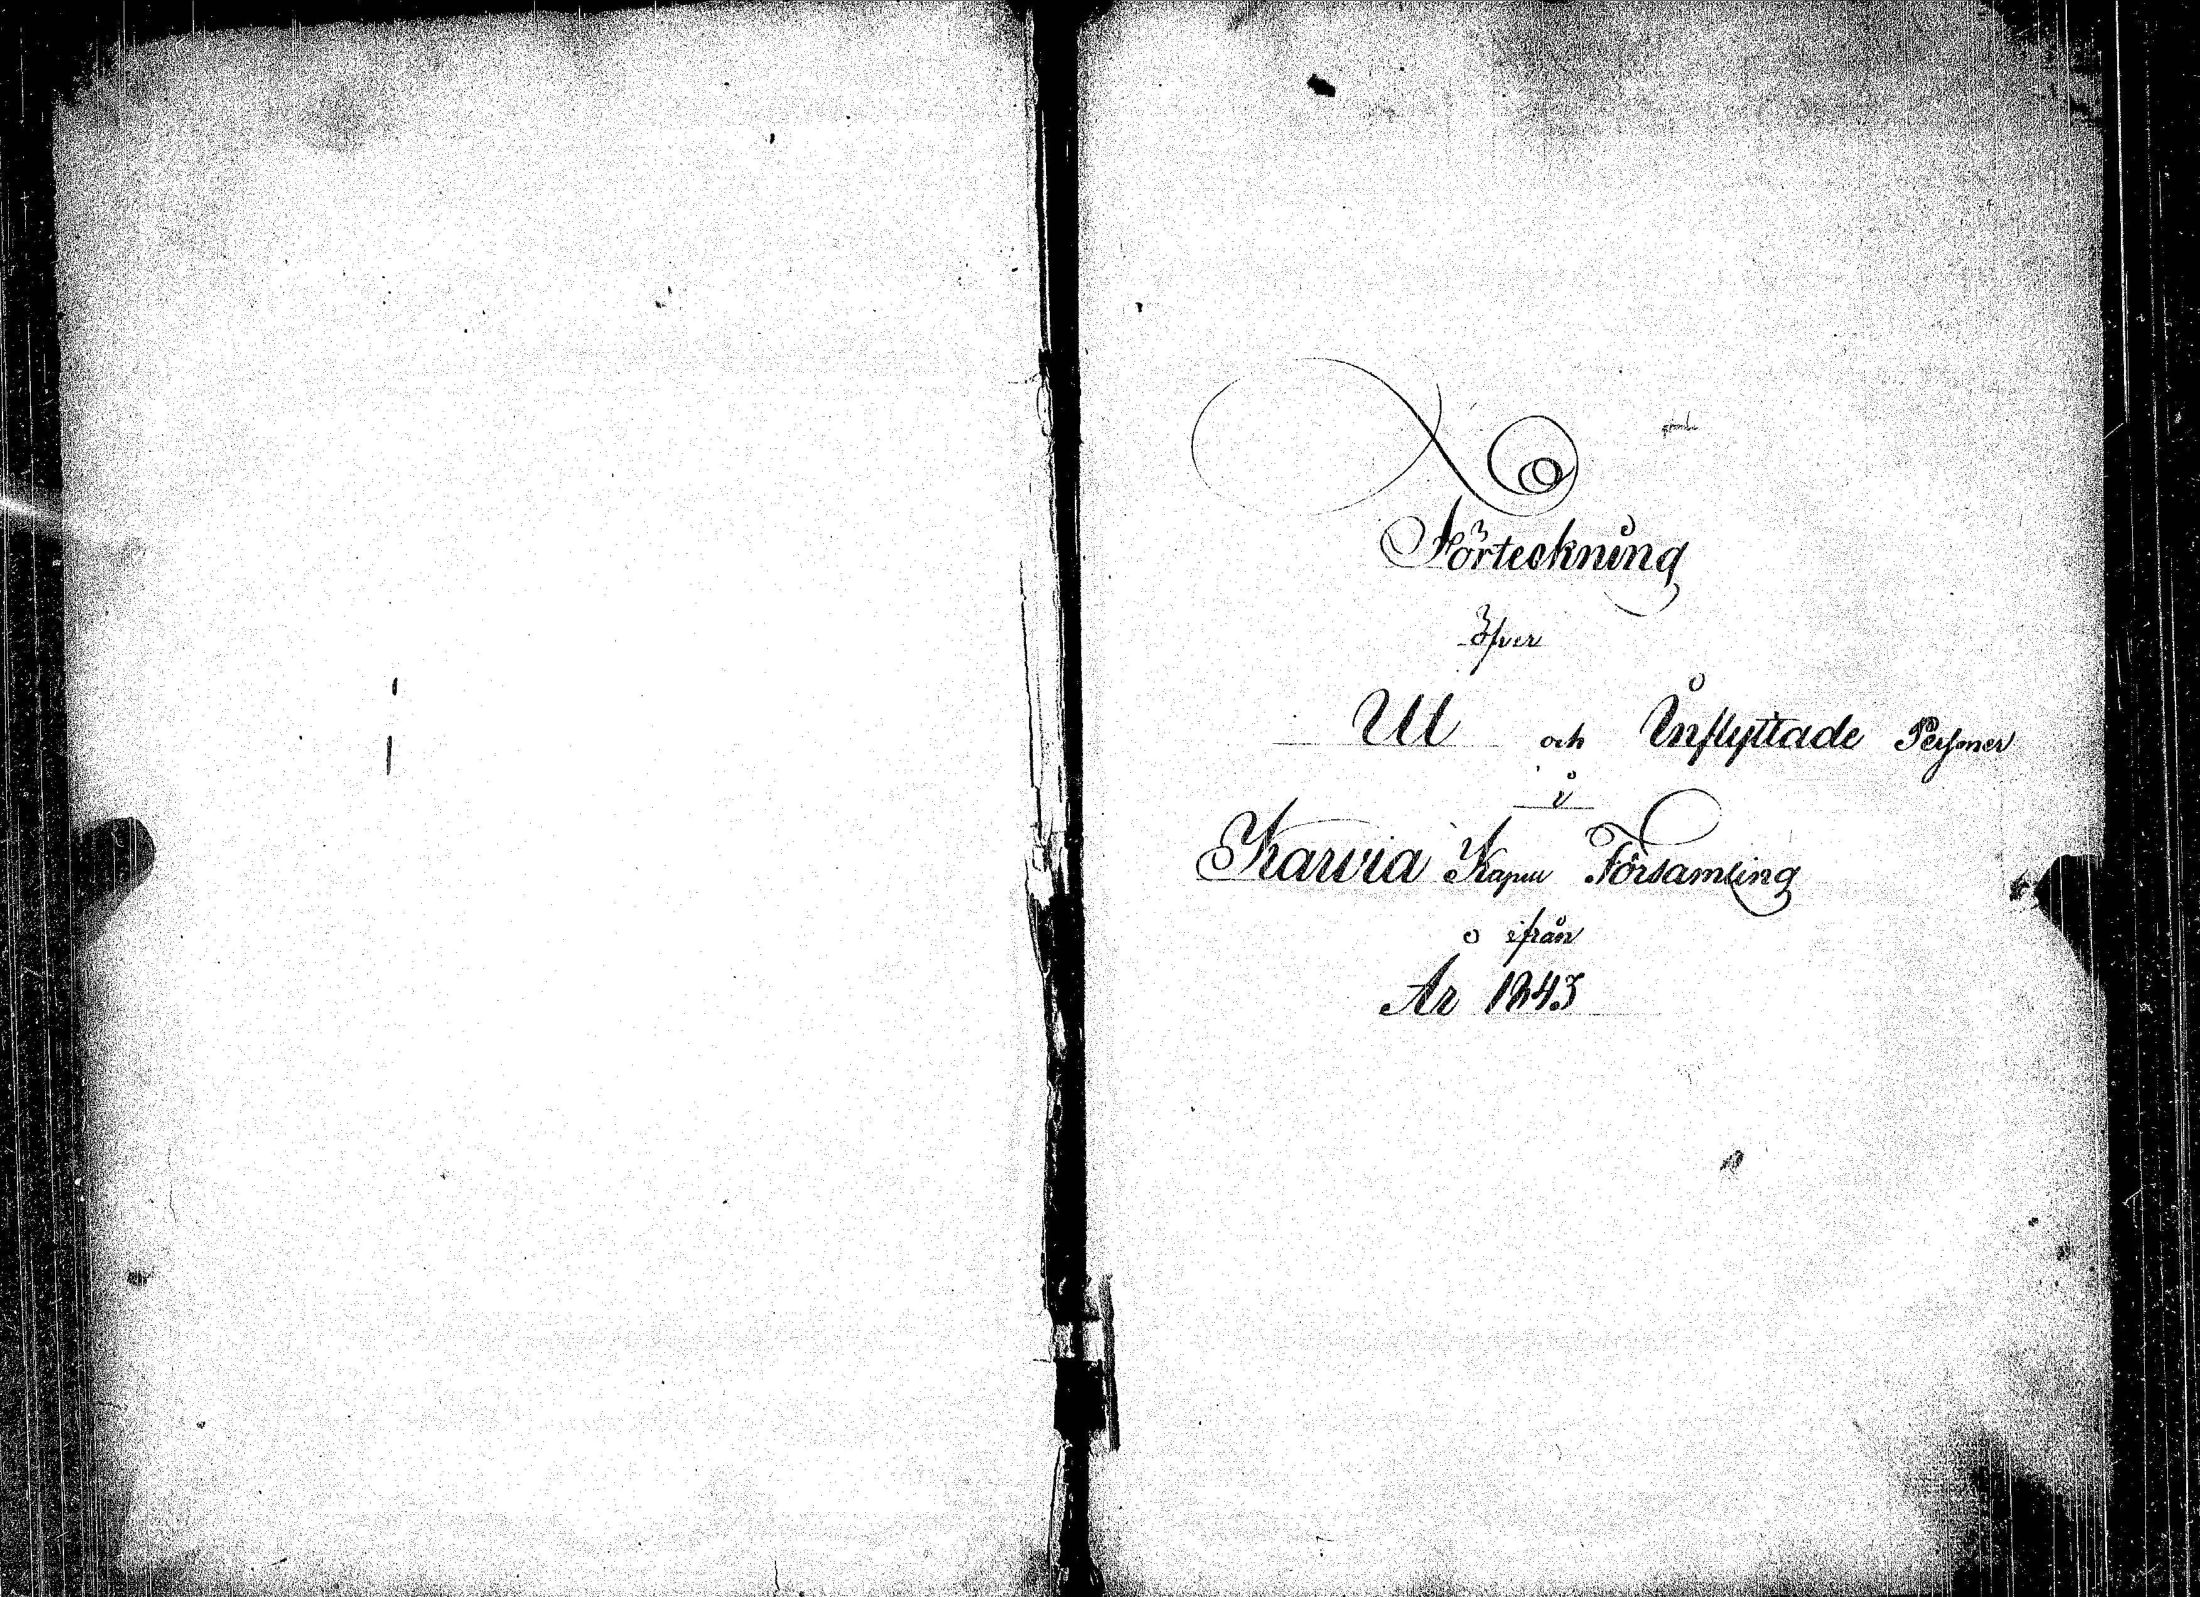 Förteckning
Öfver
Ut och Inflyttade Personer
i
Karvia Kapell Församling
ifrån
År 1843